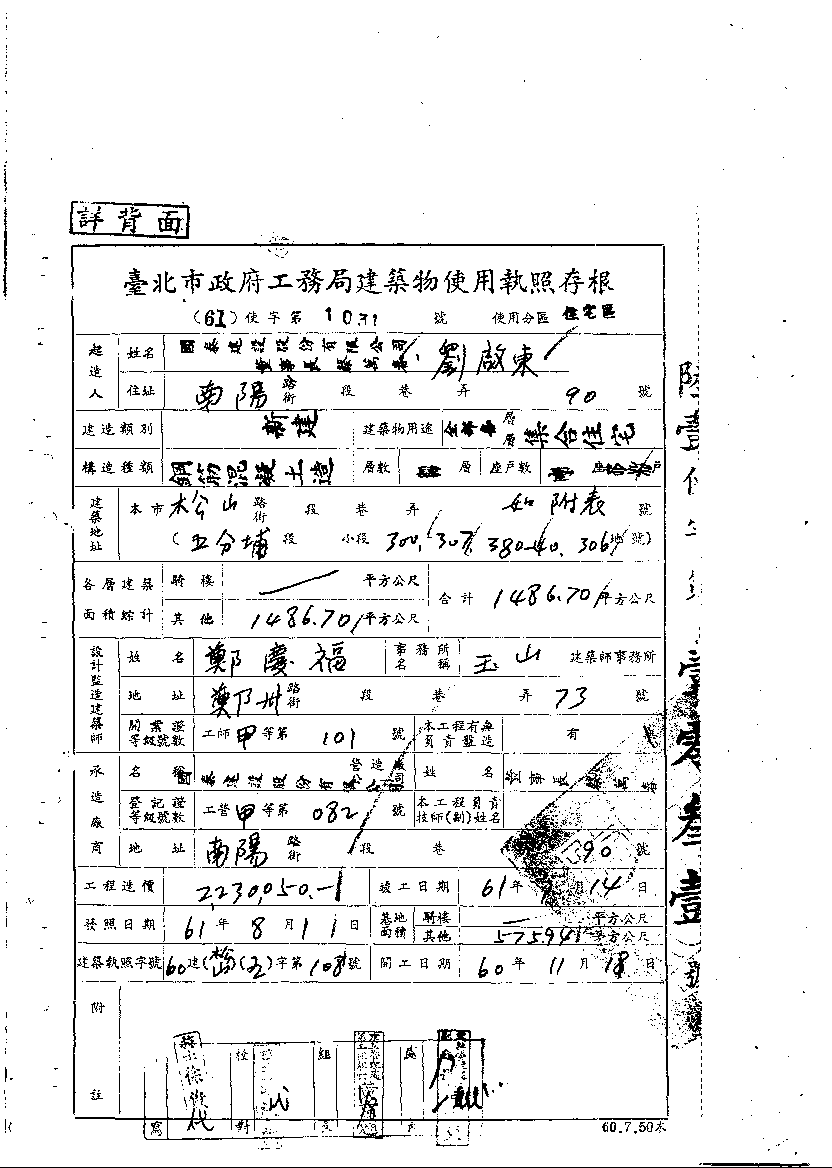 詳背面
臺北市政府工務局建築物使用執照存根
(61)使字第1031號 使用分區 住宅區
起造人 姓名 國泰建設股份有限公司 董事長蔡萬春 劉啟東
住址 南陽路街 段 巷 弄 90 號
建造類別 新建 建築物用途 層層 集合住宅
構造種類 鋼筋混凝土造 層數 層 座戶數 座 戶
建築地址 本市 松山 路街 段 巷 弄 如附表 號
(五分埔 段 小段 300, 307, 380-40, 306 地號)
各層建築面積綜計 騎樓 平方公尺 合計 1486.70 平方公尺
其他 1486.70 平方公尺
設計監造建築師 姓名 鄭慶福 事務所名稱 玉山 建築師事務所
地址 鄭州路街 段 巷 弄 73 號
開業證等級號數 工師甲等第 101 號 本工程有無負責監造 有
承造廠商 名稱 國泰建設股份有限公司 營造廠 姓名
登記證等級號數 工營甲等第 082 號 本工程負責技師(副)姓名
地址 南陽路街 段 巷 90 號
工程造價 2,230,050.- 竣工日期 61年 月14日
發照日期 61年8月11日 基地面積 騎樓 — 平方公尺
其他 575.94 平方公尺
建築執照字號 60建( )( )字第108號 開工日期 60年11月18日
附註
校對 組長
60.7.50本
陸壹使字第壹零叁壹號